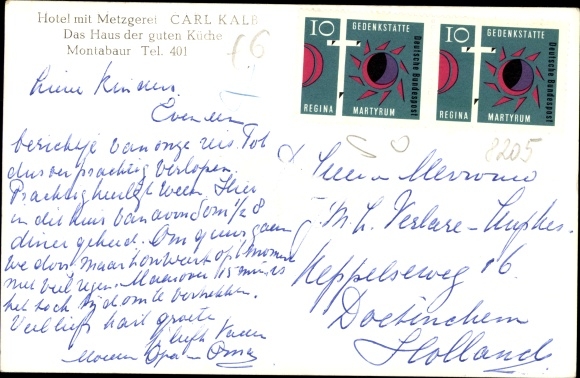 Hotel mit Metzgerei CARL KALB
Das Haus der guten Küche
Montabaur Tel. 401
f6
10 GEDENKSTÄTTE
Deutsche Bundespost
REGINA MARTYRUM
10 GEDENKSTÄTTE
Deutsche Bundespost
REGINA MARTYRUM
8205
Lieve Kinders.
Even een
berichtje van onze reis. Tot
dusver prachtig verlopen.
Prachtig heerlijk weer. Hier
in dit huis vanavond om 1/2 8
diner gehad. Om 9 uur gaan
we door maar
met veel regen. Maar over 15 min is
het toch tijd om te vertrekken.
Veel liefs hart. groeten
liefh. Vader
Moeder Opa en Oma
Heer en Mevrouw
Keppelseweg 16
Doetinchem
Holland